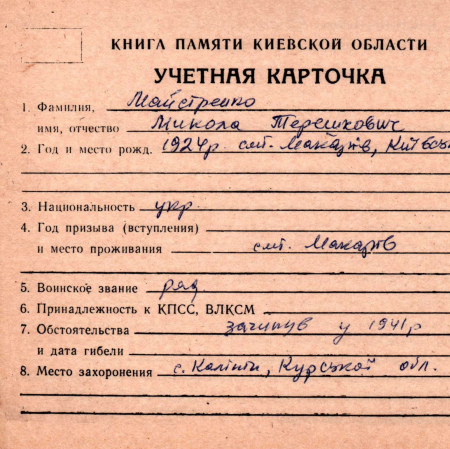 КНИГА ПАМЯТИ КИЕВСКОЙ ОБЛАСТИ
УЧЕТНАЯ КАРТОЧКА
1. Фамилия, Майстренко
имя, отчество Микола Терешкович
2. Год и место рожд. 1924р смт. Макарів,
3. Национальность укр
4. Год призыва (вступления)
и место проживания смт. Макарів
5. Воинское звание ряд
6. Принадлежность к КПСС, ВЛКСМ
7. Обстоятельства загинув у 1941р
и дата гибели
8. Место захоронения с. Калініи, Курської обл.